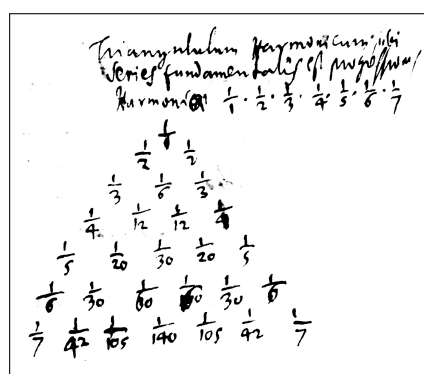 Triangululum Harmonicum, ubi
series fundamentalis est progressionis
Harmonicæ 1/1 · 1/2 · 1/3 · 1/4 · 1/5 · 1/6 · 1/7
1/1
1/2 1/2
1/3 1/6 1/3
1/4 1/12 1/12 1/4
1/5 1/20 1/30 1/20 1/5
1/6 1/30 1/60 1/60 1/30 1/6
1/7 1/42 1/105 1/140 1/105 1/42 1/7